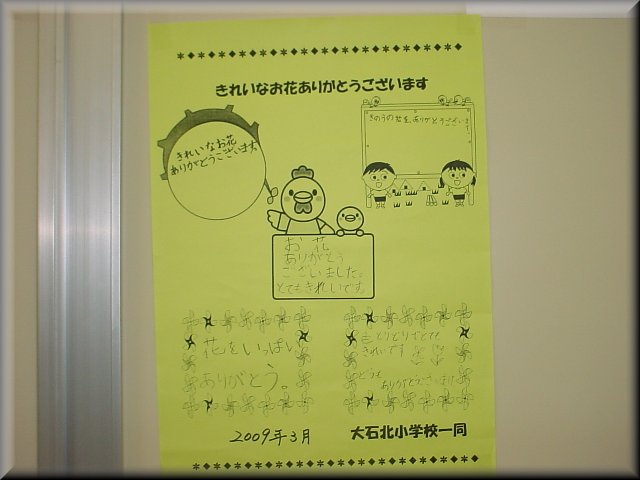 きれいなお花ありがとうございます
きれいなお花
ありがとうございます。
きのうの花を、ありがとうございま
す。
お花
ありがとう
ございました。
とてもきれいです
花をいっぱい
ありがとう。
色とりどりでとても
きれいです
どうも
ありがとうございます
2009年3月
大石北小学校一同